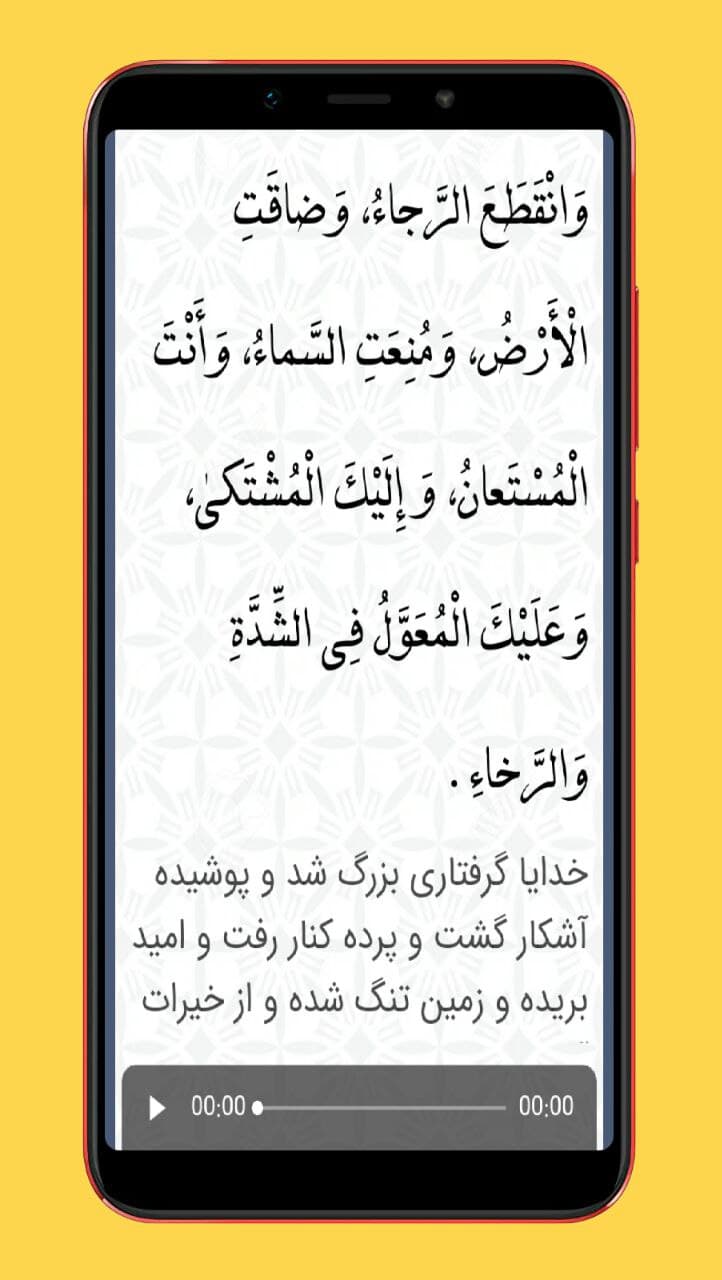 وَانْقَطَعَ الرَّجاءُ، وَضاقَتِ
الْأَرْضُ، وَمُنِعَتِ السَّماءُ، وَأَنْتَ
الْمُسْتَعانُ، وَ إِلَيْكَ الْمُشْتَكىٰ،
وَعَلَيْكَ الْمُعَوَّلُ فِى الشِّدَّةِ
وَالرَّخاءِ .
خدایا گرفتاری بزرگ شد و پوشیده
آشکار گشت و پرده کنار رفت و امید
بریده و زمین تنگ شده و از خیرات
00:00 00:00